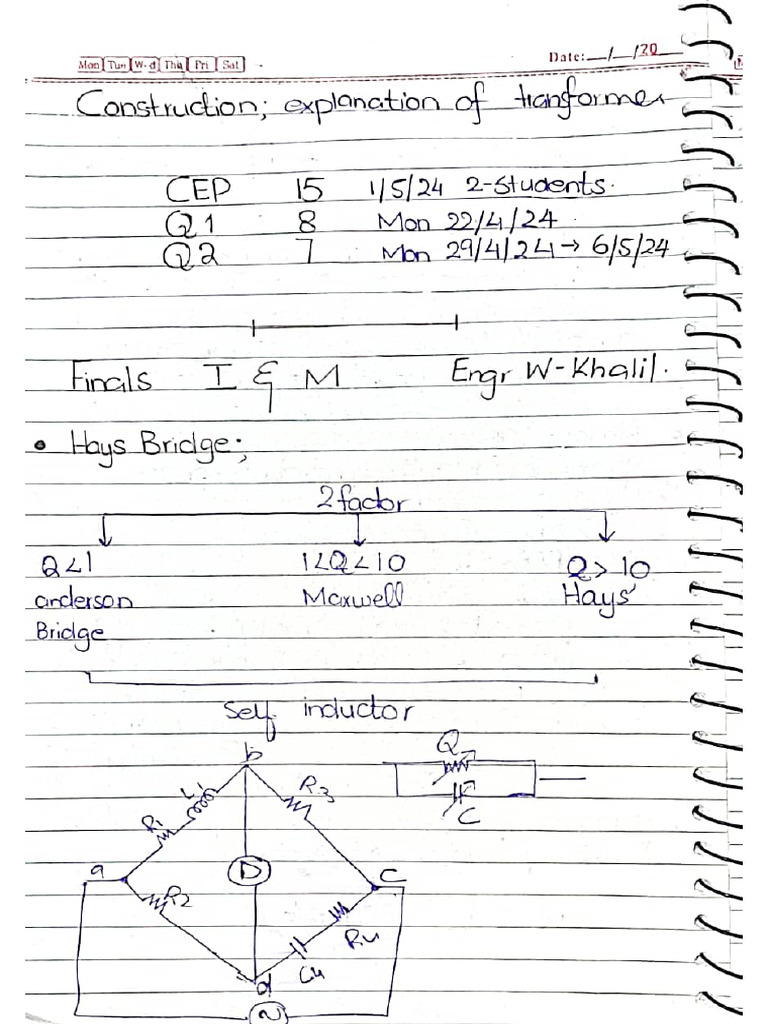 Mon Tun W-d Thu Fri Sat
Date: __/__/20
Construction; explanation of transformer
CEP 15 1/5/24 2-Students.
Q1 8 Mon 22/4/24
Q2 7 Mon 29/4/24 → 6/5/24
Finals I & M Engr W-Khalil.
• Hays Bridge;
2 factor
Q<1 1<Q<10 Q>10
anderson Maxwell Hays
Bridge
Self inductor
b
Q
L1 R3
R1
C
a D C
R2
R4
C4
d